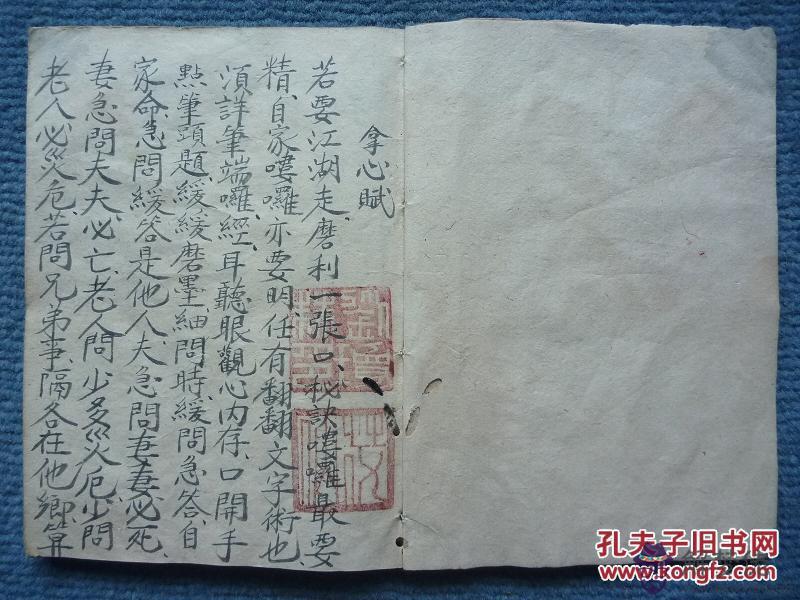 拿心賦
若要江湖走磨利一張口、秘訣嘍囉最要
精、自家嘍囉亦要明、任有翻翻文字術也、
須詳筆端囉經、耳聽眼觀心內存、口開手
點筆頭題、緩緩磨墨細問時、緩問急答、自
家命、急問緩答是他人、夫急問妻妻必死、
妻急問夫夫必亡、老人問少多災危、少問
老人必災危、若問兄弟事、隔各在他鄉、算
孔夫子旧书网
www.kongfz.com